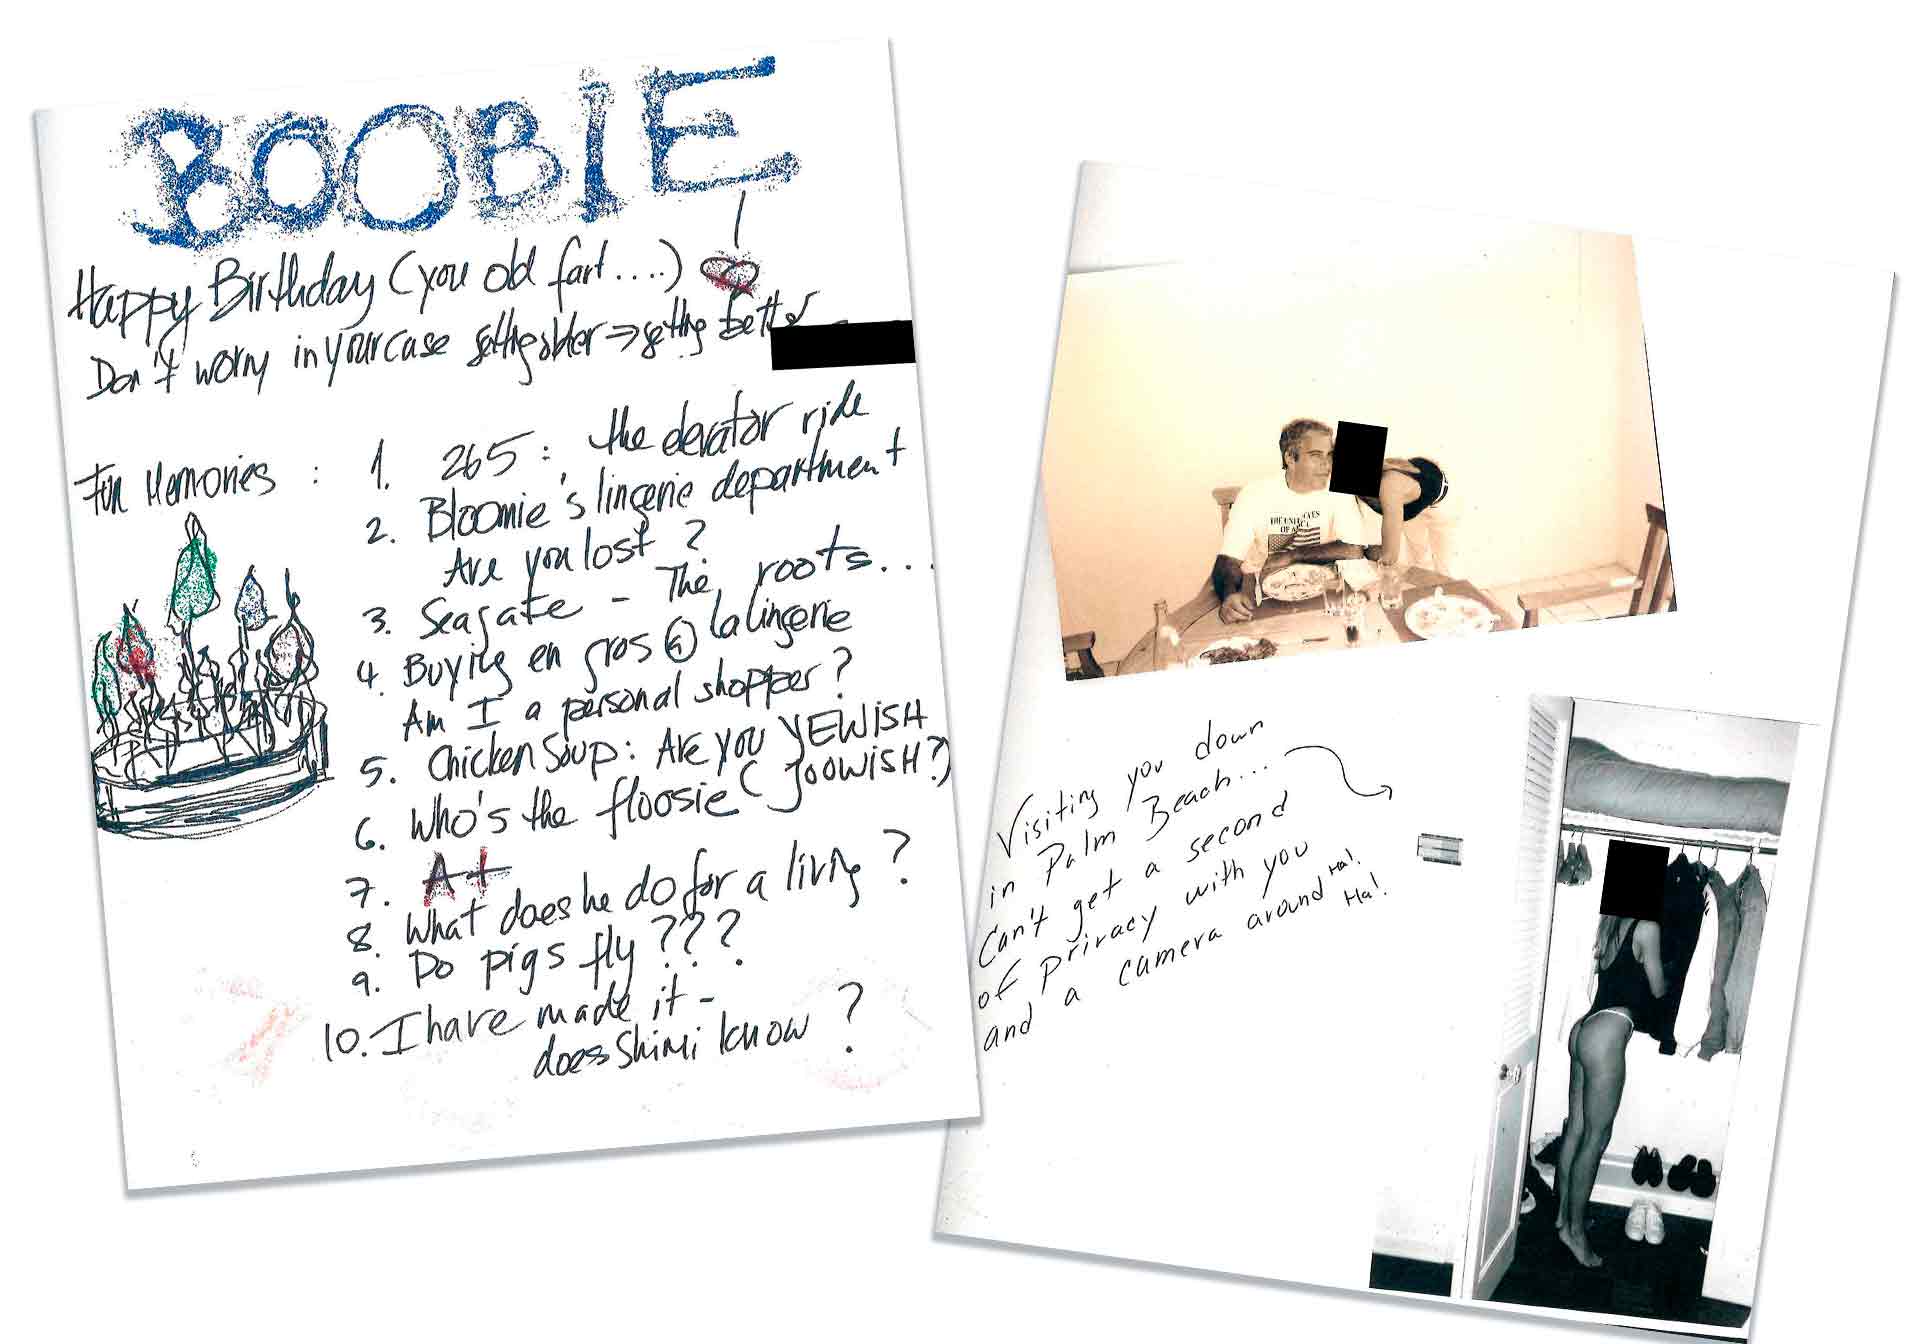 BOOBIE
Happy Birthday (you old fart....)
Don't worry in your case getting older => getting better
Fun Memories :
1. 265 : the elevator ride
2. Bloomie's lingerie department
Are you lost ?
3. Seagate - The roots...
4. Buying en gros @ La lingerie
Am I a personal shopper ?
5. Chicken Soup : Are you YEWISH
(JOOWISH?)
6. Who's the floosie
7. A+
8. What does he do for a living ?
9. Do pigs fly ???
10. I have made it -
does Shimi know ?
THE UNITED STATES
OF
Visiting you down
in Palm Beach...
Can't get a second
of privacy with you
and a camera around Ha!
Ha!